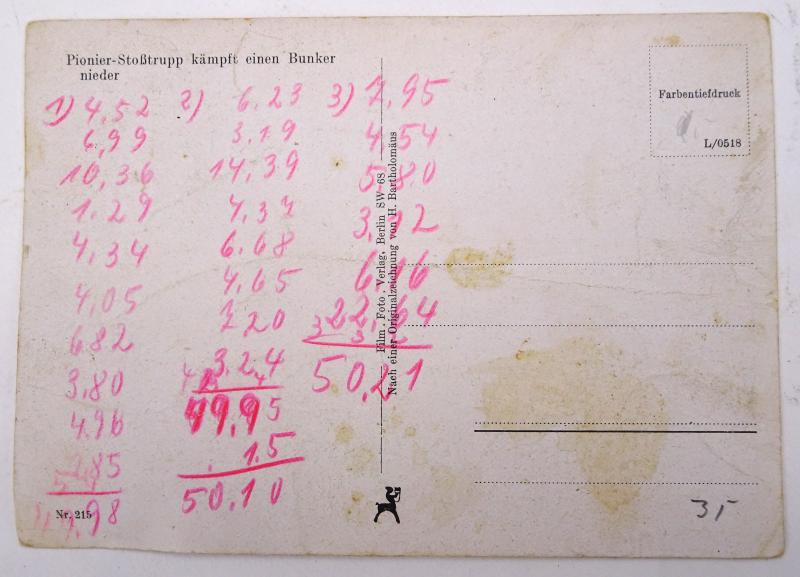 Pionier-Stoßtrupp kämpft einen Bunker
nieder
1) 4,52
6,99
10,36
1,29
4,34
4,05
682
3,80
4,96
2,85
49,98
Nr. 215
2) 6,23
3,19
14,39
4,37
6,68
4,65
720
3,24
49,95
1.5
50,10
3) 7,95
4,54
5,80
3,12
6,16
22,64
50,21
Film-Foto-Verlag, Berlin SW 68
Nach einer Originalzeichnung von H. Bartholomäus
Farbentiefdruck
L/0518
3,-